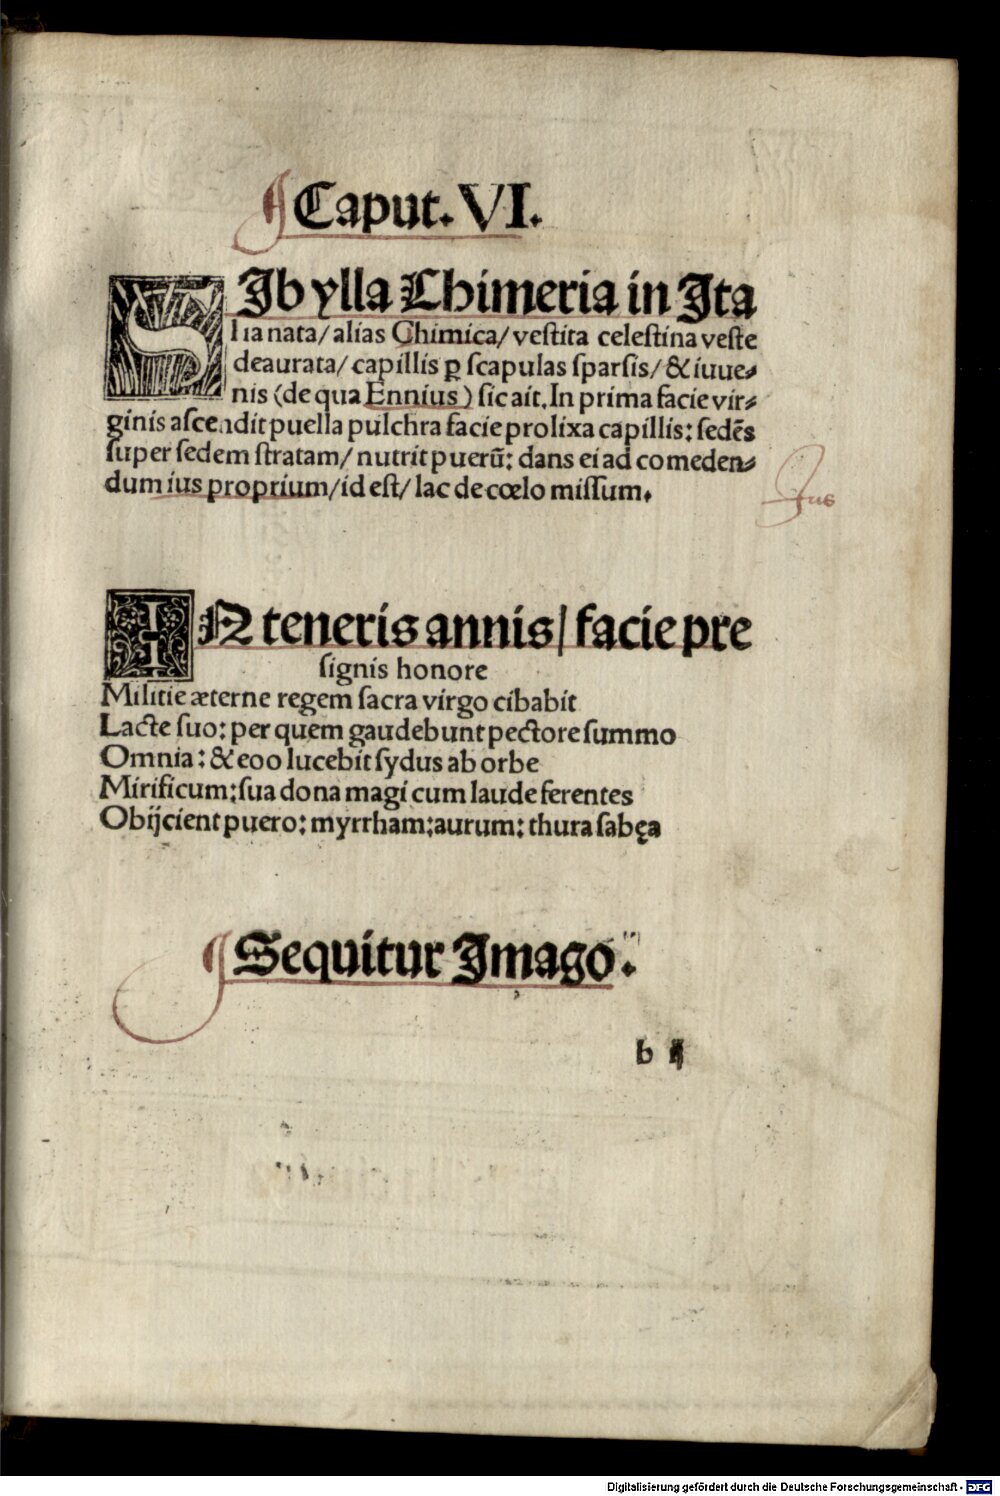 ¶ Caput. VI.
SIbylla Chimeria in Ita
lia nata/ alias Chimica/ vestita celestina veste
deaurata/ capillis ꝑ scapulas sparsis/ & iuue-
nis (de qua Ennius) sic ait. In prima facie vir-
ginis ascendit puella pulchra facie prolixa capillis: sedēs
super sedem stratam/ nutrit puerū: dans ei ad comeden-
dum ius proprium/ id est/ lac de cœlo missum.
Jus
IN teneris annis/ facie pre
signis honore
Militie æterne regem sacra virgo cibabit
Lacte suo: per quem gaudebunt pectore summo
Omnia: & eoo lucebit sydus ab orbe
Mirificum: sua dona magi cum laude ferentes
Obijcient puero: myrrham: aurum: thura sabęa
¶ Sequitur Imago.
b ij
Digitalisierung gefördert durch die Deutsche Forschungsgemeinschaft - DFG